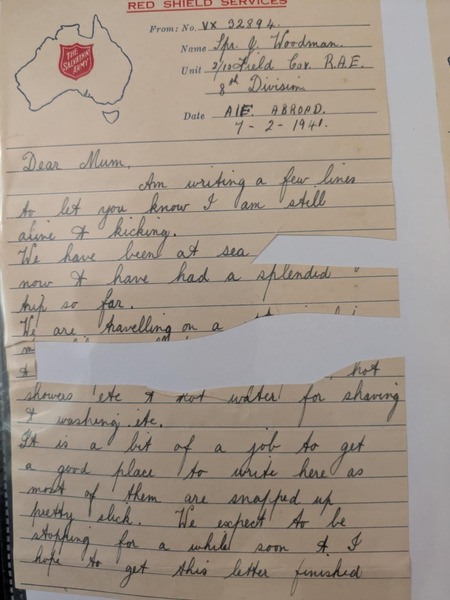 RED SHIELD SERVICES
THE SALVATION ARMY
From: No. VX 32894.
Name Spr. J. Woodman.
Unit 2/10 Field Coy. R.A.E.
8th Division
Date A.I.F. ABROAD.
7-2-1941.
Dear Mum,
Am writing a few lines
to let you know I am still
alive & kicking.
We have been at sea
now & have had a splendid
trip so far.
We are travelling on a
&
hot
showers etc & hot water for shaving
& washing etc.
It is a bit of a job to get
a good place to write here as
most of them are snapped up
pretty slick. We expect to be
stopping for a while soon & I
hope to get this letter finished